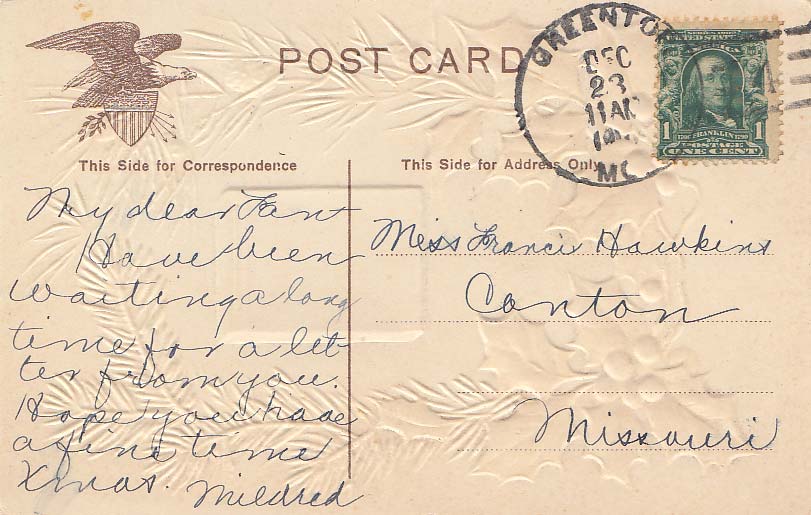 POST CARD
GREENTO
DEC
23
11 AM
MO
SERIES 1902
UNITED STATES OF
AMERICA
1706 FRANKLIN 1790
1 POSTAGE 1
ONE CENT
This Side for Correspondence
This Side for Address Only
My dear
Have been
waiting a long
time for a let-
ter from you.
Hope you have
a fine time
Xmas. Mildred
Miss Francis Hawkins
Canton
Missouri